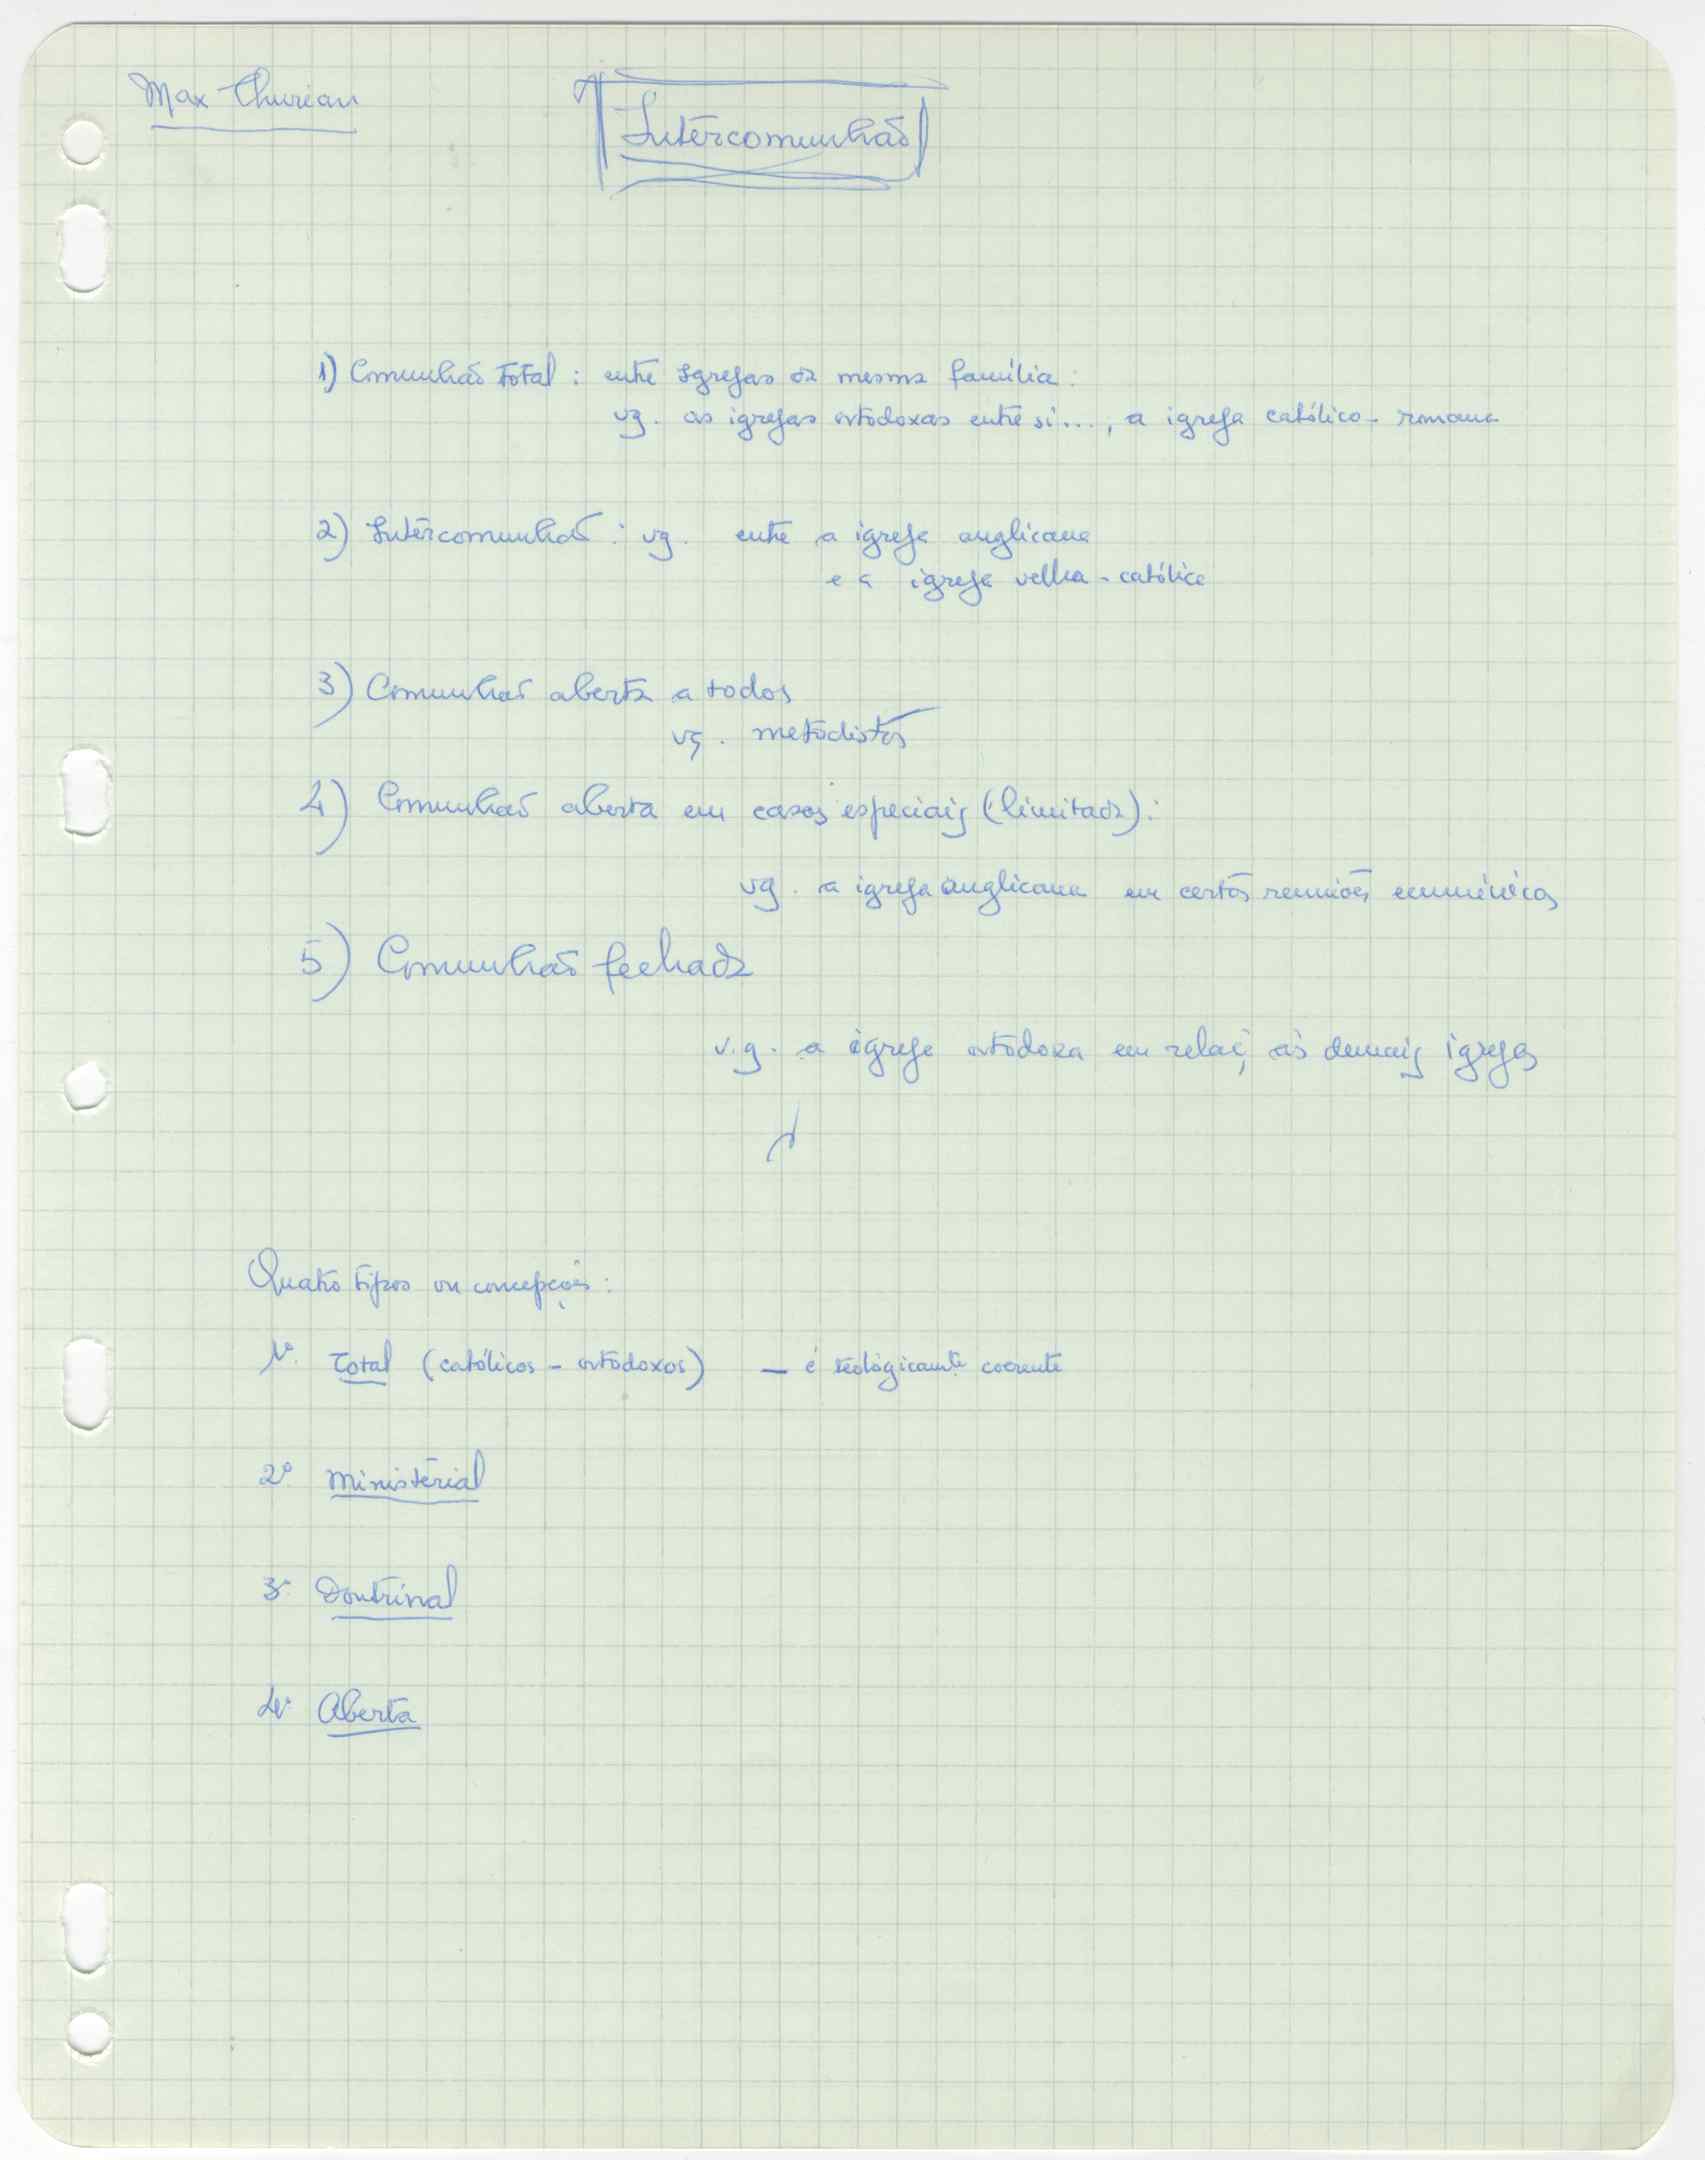 Max Thurian
Intercomunhão
1) Comunhão total : entre Igrejas da mesma família :
vg. as igrejas ortodoxas entre si..., a igreja católico-romana
2) Intercomunhão : vg. entre a igreja anglicana
e a igreja velha-católica
3) Comunhão aberta a todos
vg. metodistas
4) Comunhão aberta em casos especiais (limitada) :
vg. a igreja anglicana em certas reuniões ecuménicas
5) Comunhão fechada
v.g. a igreja ortodoxa em relaç. às demais igrejas
Quatro tipos ou concepções :
1º. Total (católicos - ortodoxos) — é teològicamte coerente
2º Ministerial
3º Doutrinal
4º Aberta